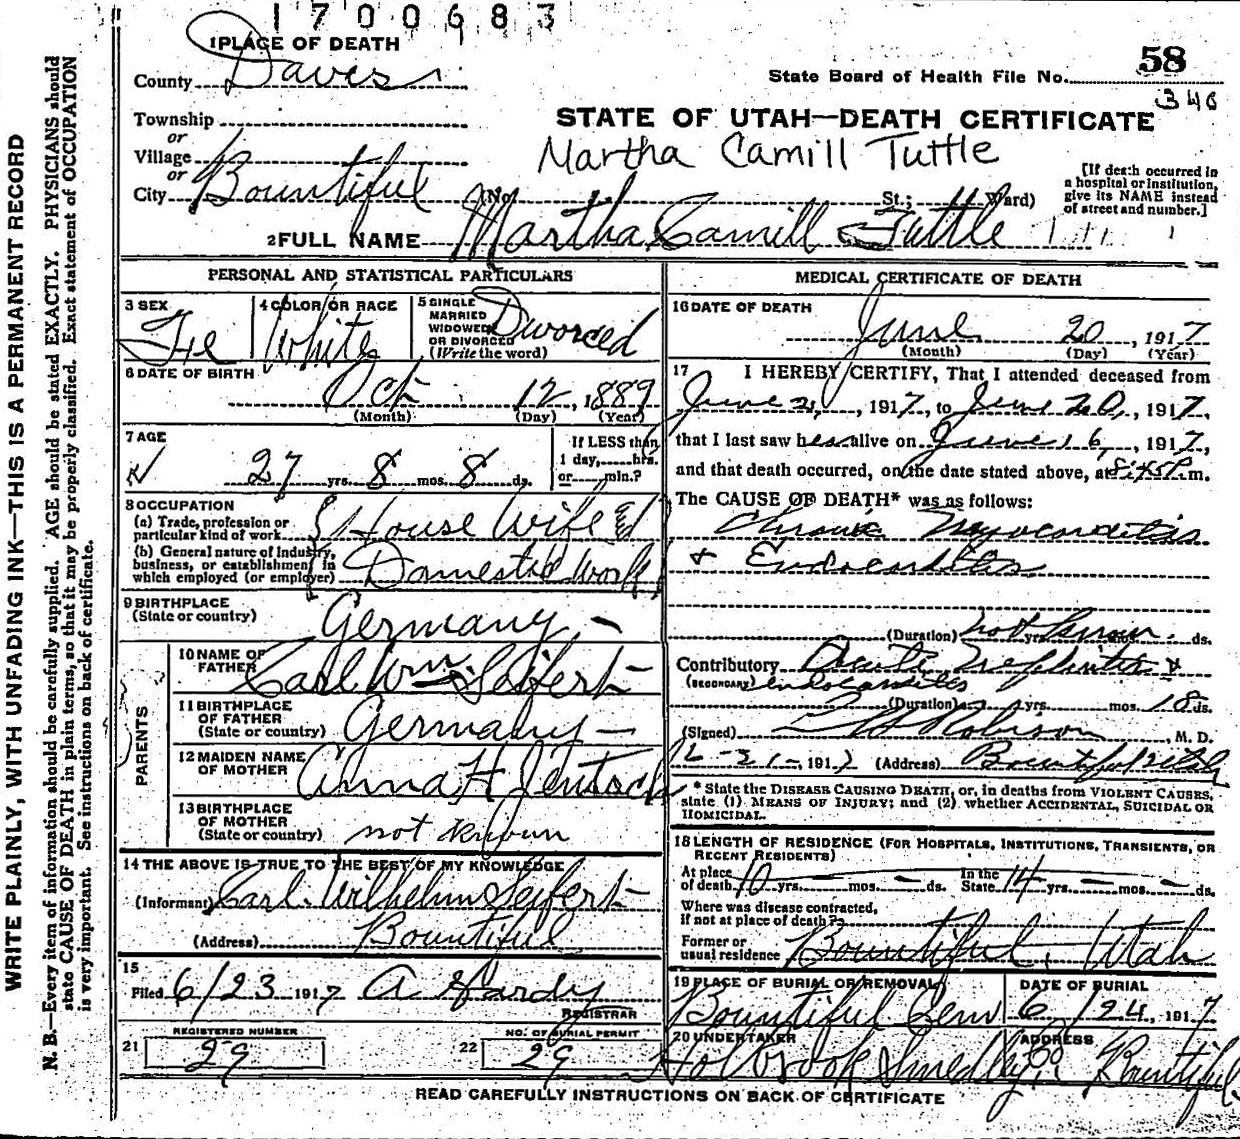 1700683
1 PLACE OF DEATH
58
County Davis
State Board of Health File No.
346
Township
STATE OF UTAH—DEATH CERTIFICATE
or
Martha Camill Tuttle
Village
or
City Bountiful (No. St.; Ward)
[If death occurred in
a hospital or institution,
give its NAME instead
of street and number.]
2 FULL NAME Martha Camill Tuttle
PERSONAL AND STATISTICAL PARTICULARS
3 SEX Fe
4 COLOR OR RACE White
5 SINGLE
MARRIED
WIDOWED
OR DIVORCED
(Write the word)
Divorced
6 DATE OF BIRTH
Oct 12, 1889
(Month) (Day) (Year)
7 AGE
27 yrs. 8 mos. 8 ds.
If LESS than
1 day, hrs.
or min.?
8 OCCUPATION
(a) Trade, profession or
particular kind of work House Wife
(b) General nature of Industry,
business, or establishment in
which employed (or employer) Domestic Work
9 BIRTHPLACE
(State or country) Germany
PARENTS
10 NAME OF
FATHER Carl Wm Seifert
11 BIRTHPLACE
OF FATHER
(State or country) Germany
12 MAIDEN NAME
OF MOTHER Anna H Jentsch
13 BIRTHPLACE
OF MOTHER
(State or country) not known
14 THE ABOVE IS TRUE TO THE BEST OF MY KNOWLEDGE
(Informant) Carl Wilhelm Seifert
(Address) Bountiful
15
Filed 6/23 1917 A Hardy
REGISTRAR
REGISTERED NUMBER
21 29
NO. OF BURIAL PERMIT
22 29
MEDICAL CERTIFICATE OF DEATH
16 DATE OF DEATH
June 20, 1917
(Month) (Day) (Year)
17 I HEREBY CERTIFY, That I attended deceased from
June 2, 1917, to June 20, 1917,
that I last saw her alive on June 16, 1917,
and that death occurred, on the date stated above, at m.
The CAUSE OF DEATH* was as follows:
Chronic Myocarditis
+ Endocarditis
(Duration) not known yrs. mos. ds.
Contributory Acute Nephritis &
(SECONDARY) endocarditis
(Duration) yrs. mos. 18 ds.
(Signed) Robison, M. D.
6-21-, 1917 (Address) Bountiful Utah
* State the DISEASE CAUSING DEATH, or, in deaths from VIOLENT CAUSES,
state (1) MEANS OF INJURY; and (2) whether ACCIDENTAL, SUICIDAL OR
HOMICIDAL.
18 LENGTH OF RESIDENCE (FOR HOSPITALS, INSTITUTIONS, TRANSIENTS, OR
RECENT RESIDENTS)
At place
of death 10 yrs. — mos. — ds. In the
State 14 yrs. — mos. — ds.
Where was disease contracted,
if not at place of death?
Former or
usual residence Bountiful, Utah
19 PLACE OF BURIAL OR REMOVAL
Bountiful Cem
DATE OF BURIAL
6/24, 1917
20 UNDERTAKER
Holbrook Smedley Co
ADDRESS
Bountiful
READ CAREFULLY INSTRUCTIONS ON BACK OF CERTIFICATE
WRITE PLAINLY, WITH UNFADING INK—THIS IS A PERMANENT RECORD
N. B.—Every item of information should be carefully supplied. AGE should be stated EXACTLY. PHYSICIANS should
state CAUSE OF DEATH in plain terms, so that it may be properly classified. Exact statement of OCCUPATION
is very important. See instructions on back of certificate.